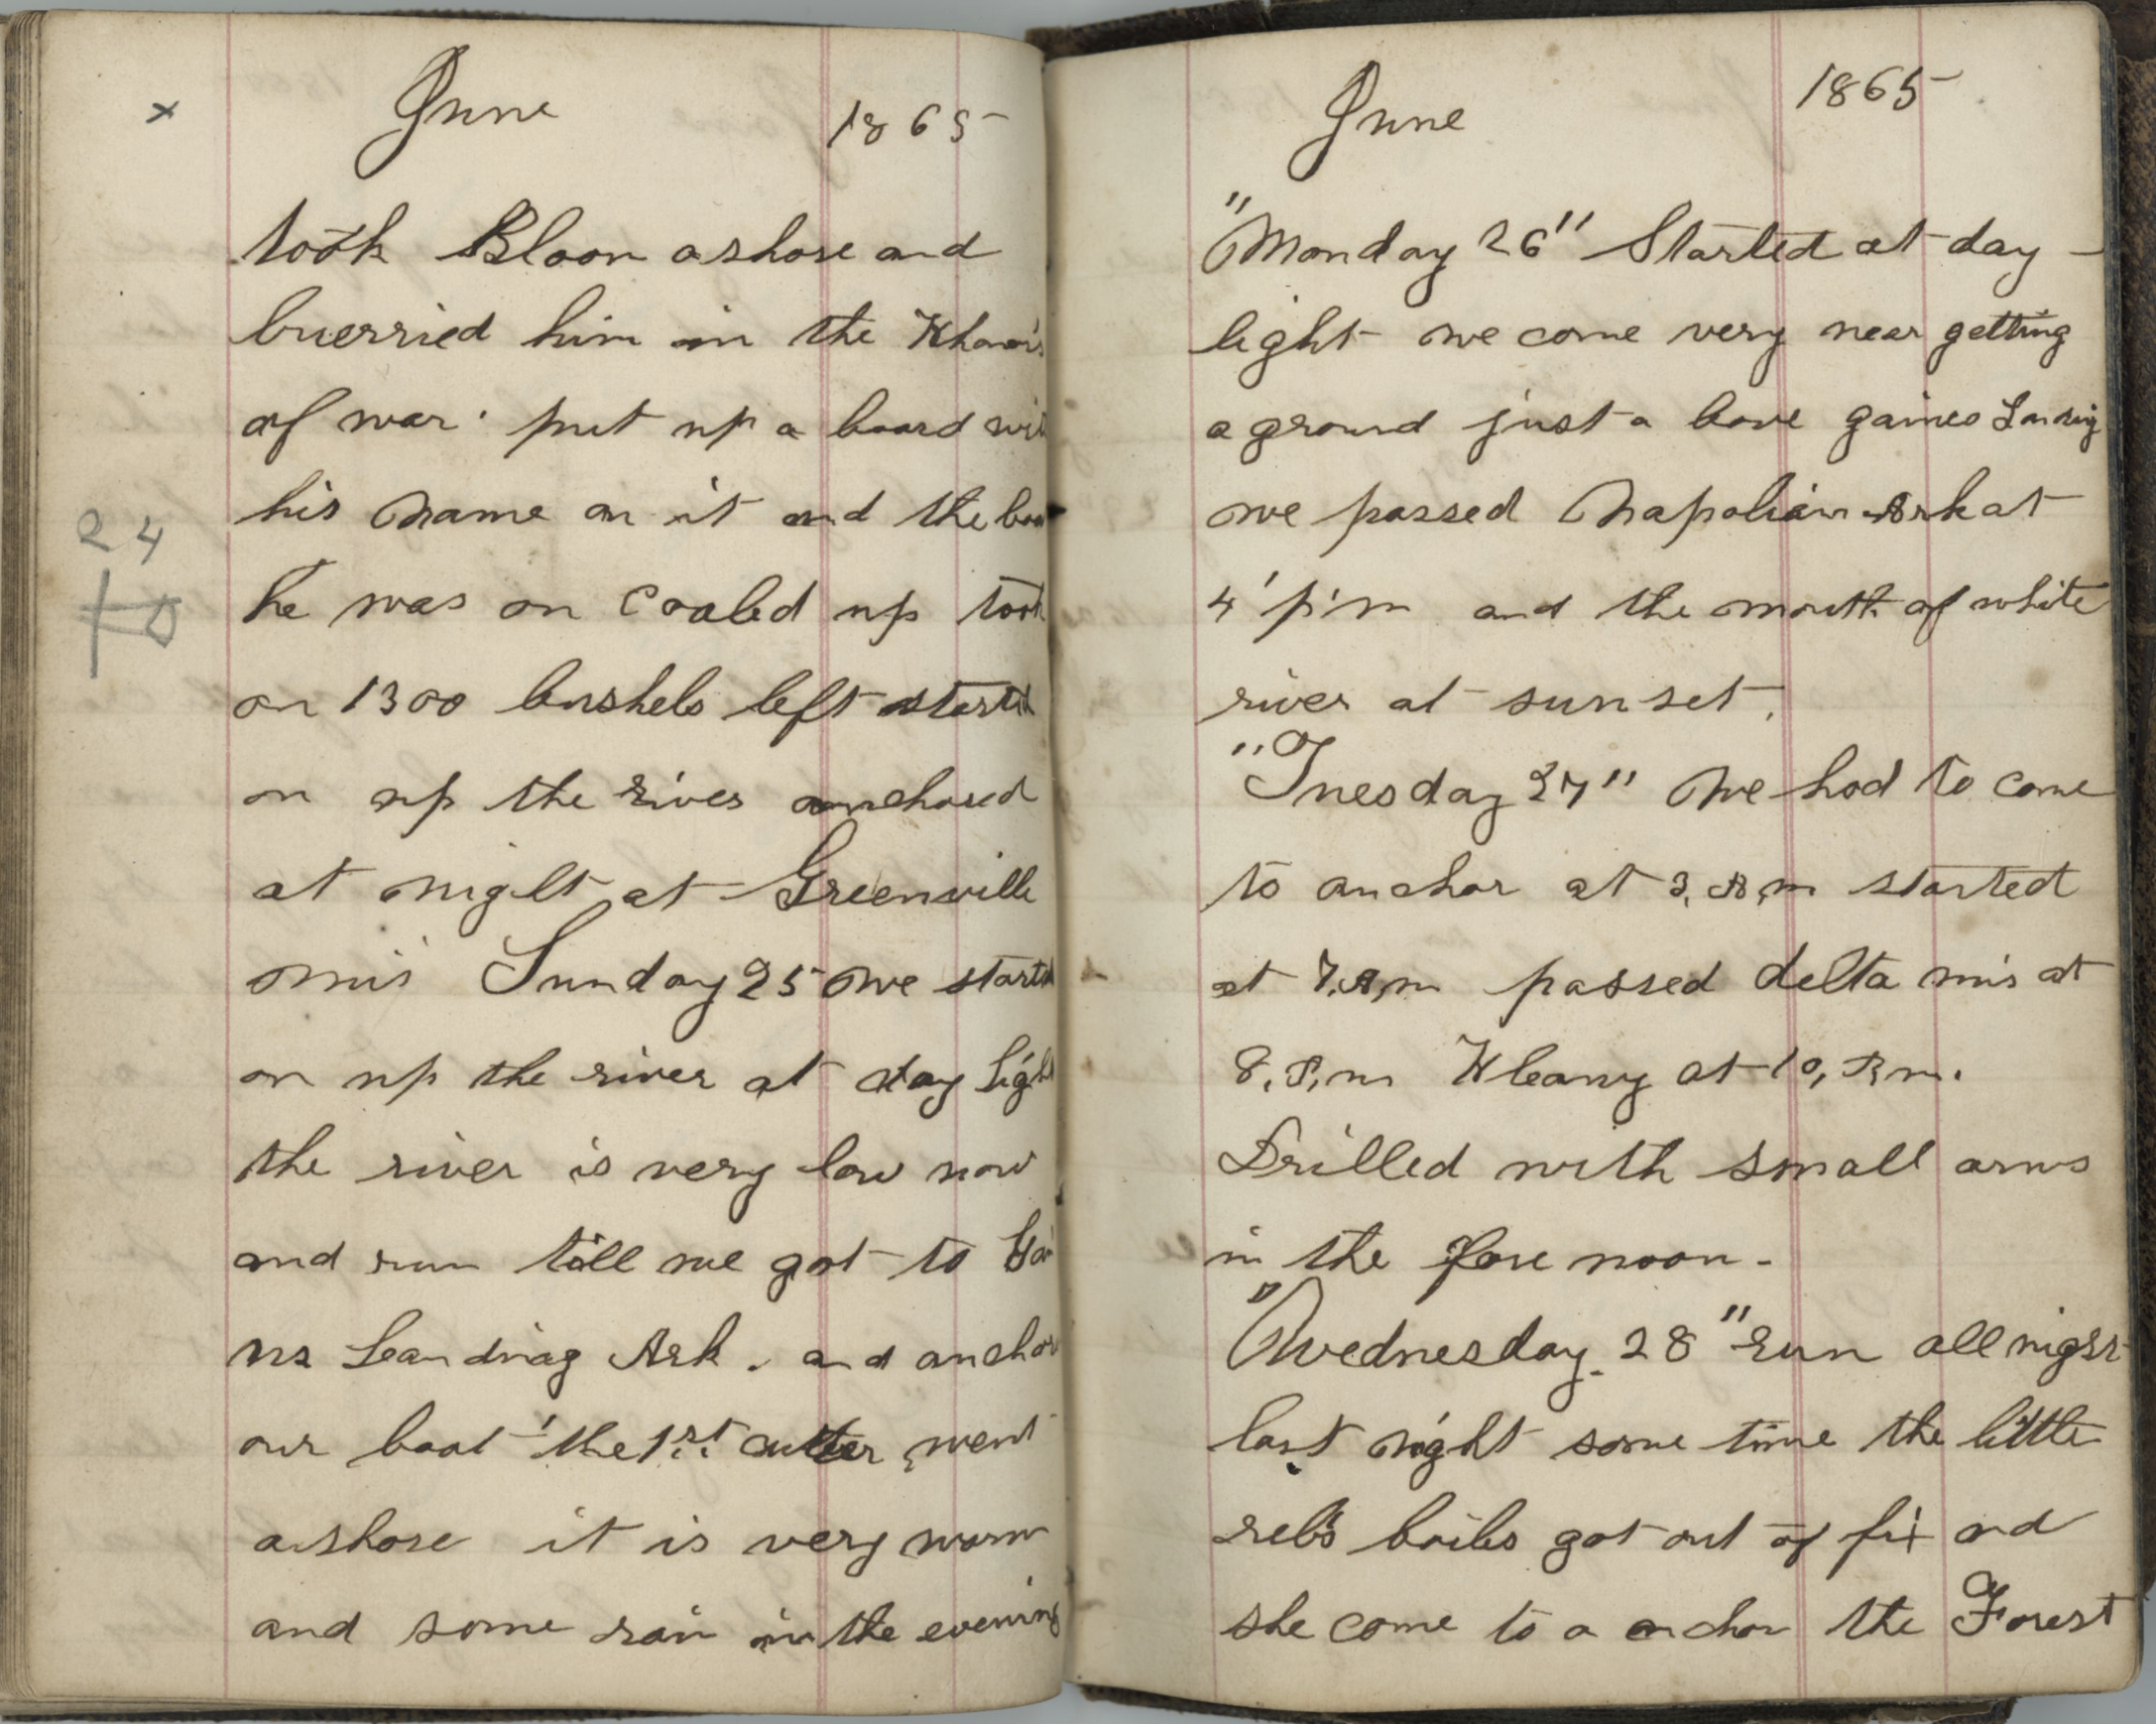 x
June 1865
took Bloom ashore and
buerried him in the
of war. put up a board
his name on it and the
24
he was on Coaled up took
on 1300 bushels left started
on up the river anchored
at night at Greenville
mis Sunday 25 we started
on up the river at day light
the river is very low now
and run till we got to Gai
ns Leanding Ark. and anchor
our boat the 1st cutter went
ashore it is very warm
and some rain in the evening
June 1865
"Monday 26" Started at day-
light we come very near getting
a ground just a bove gaines Landing
we passed Napoliain Ark at
4 p m and the mouth of white
river at sunset.
"Tuesday 27" We had to come
to anchor at 3, A, m started
at 7, A, m passed delta mis at
8, P, m at 10, P, m.
Drilled with small arms
in the fore noon-
"Wednesday 28" run all
last night some time the little
rebs boiles got out of fix and
she come to a anchor the Forest